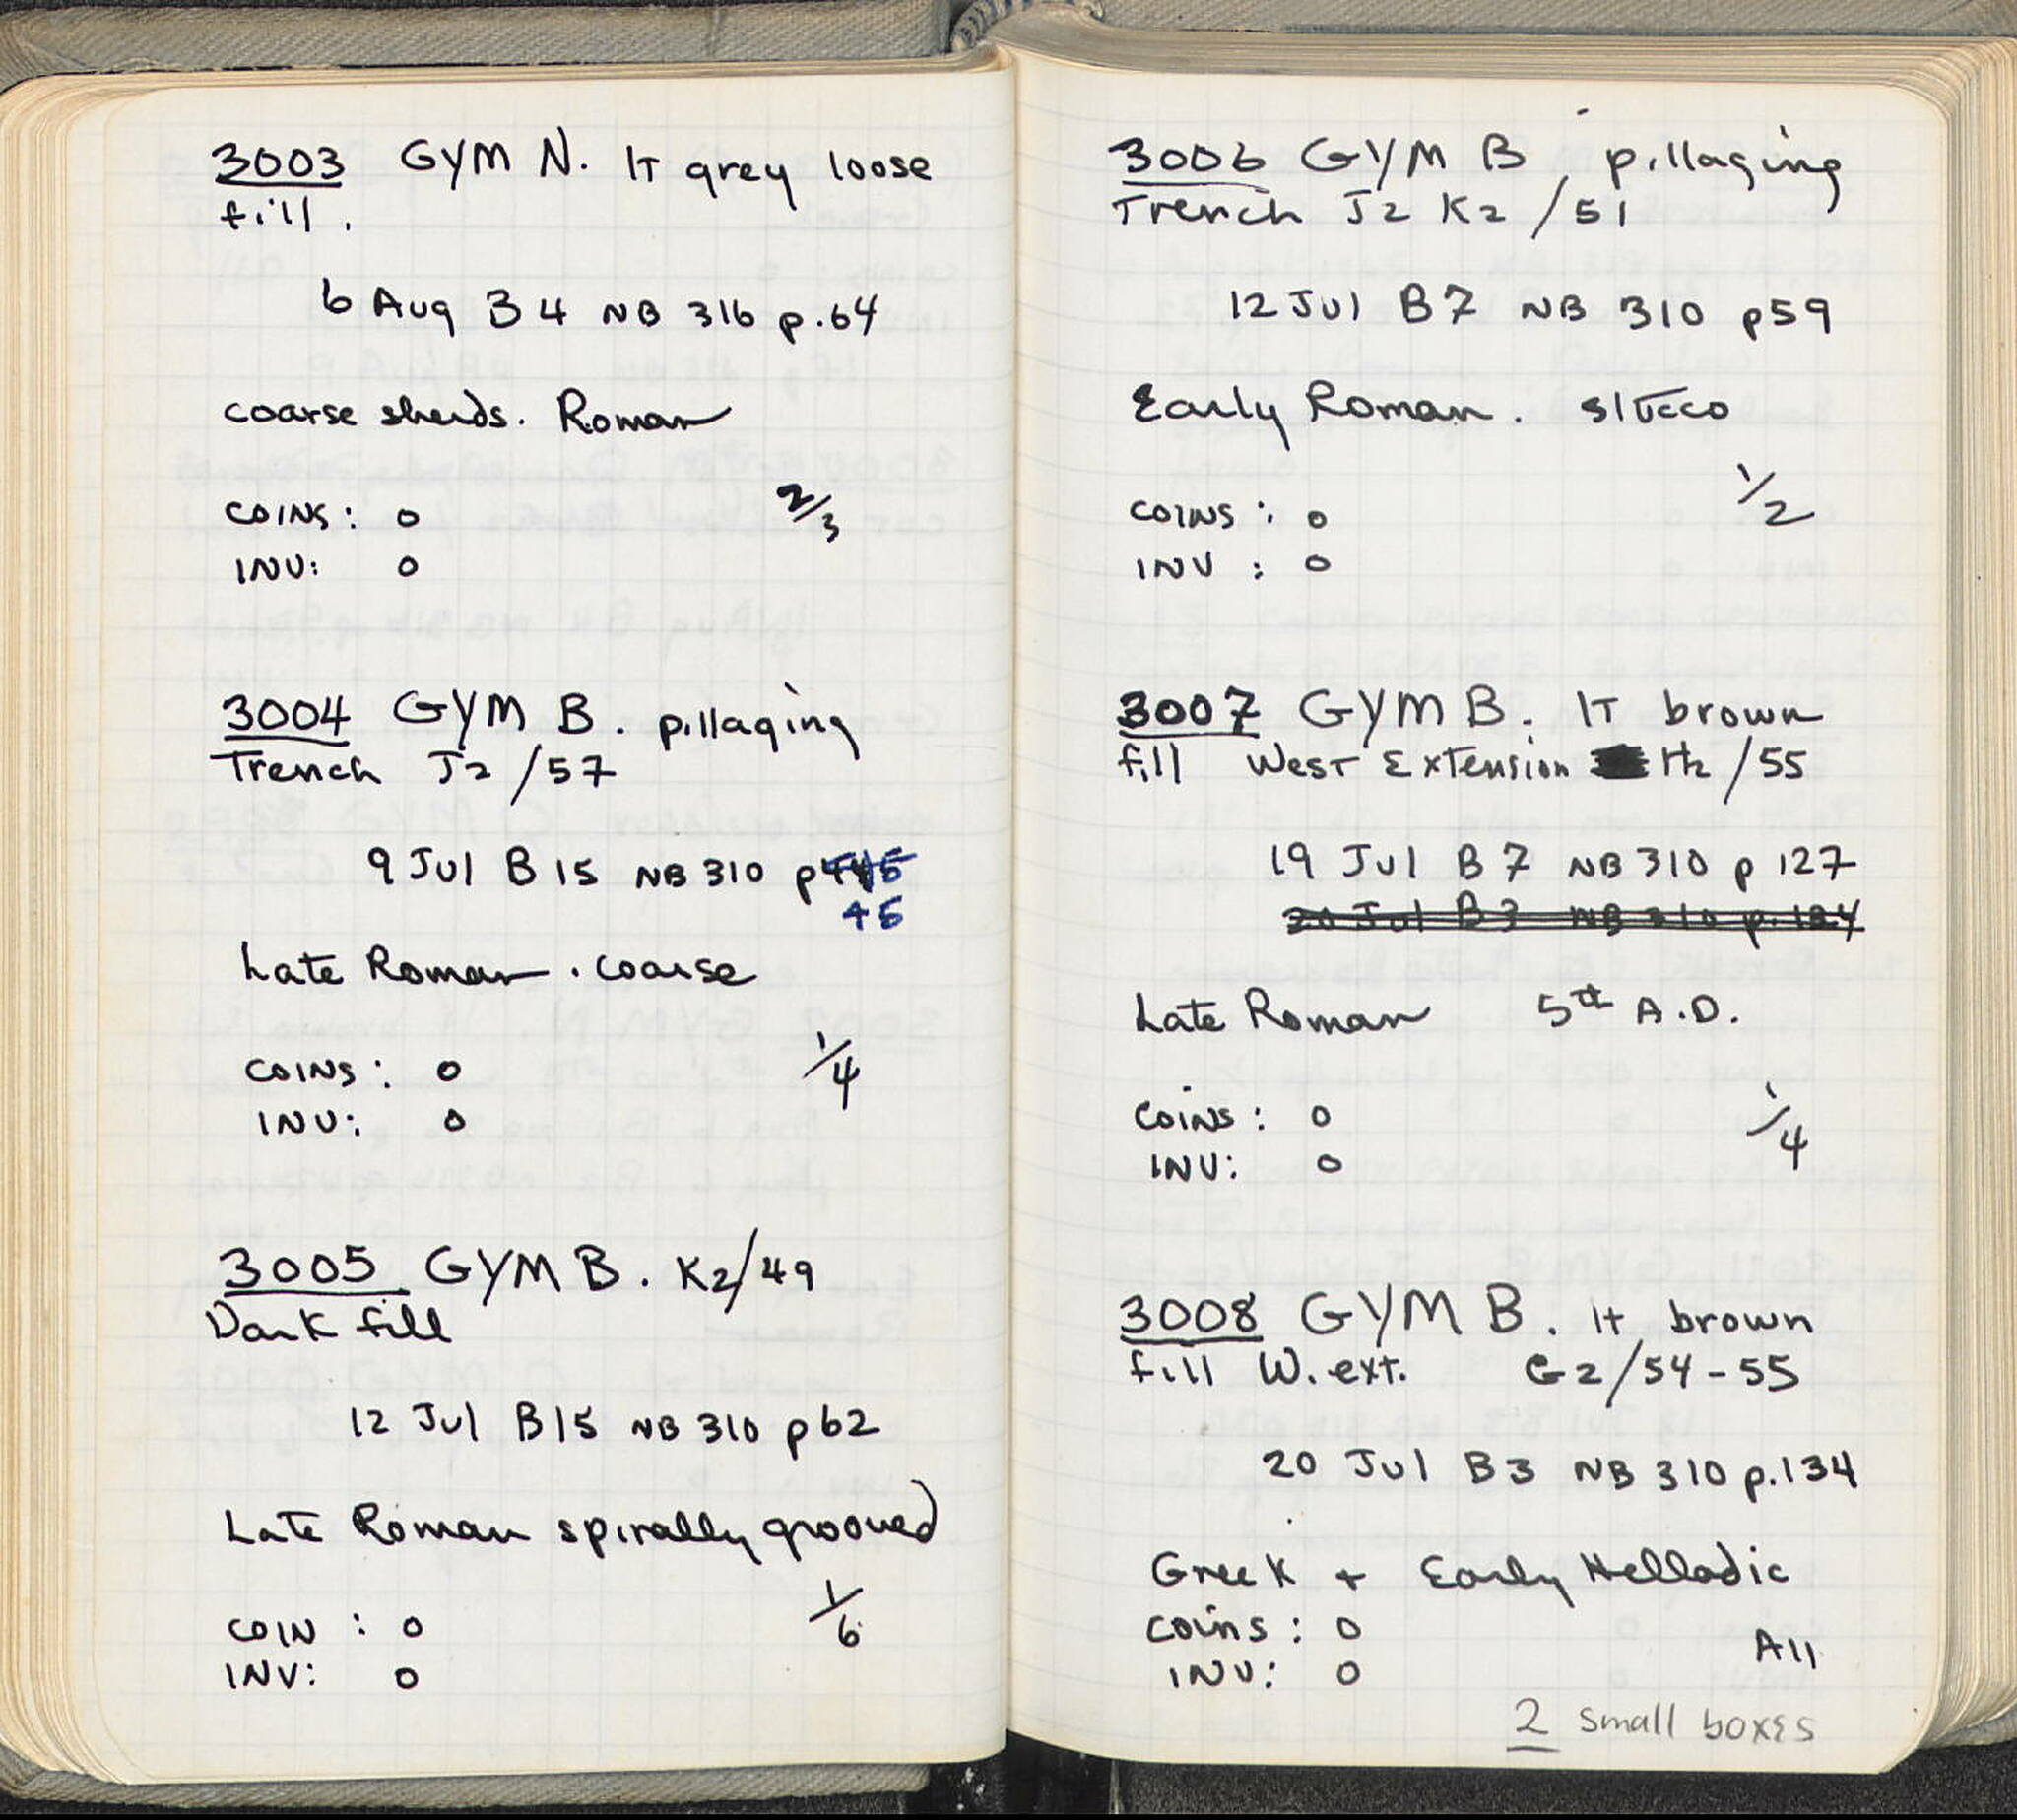 3003 GYM N. lt grey loose
fill.
6 Aug B4 NB 316 p.64
coarse sherds. Roman
COINS: 0 2/3
INV: 0
3004 GYM B. pillaging
Trench J2/57
9 Jul B15 NB 310 p
45
Late Roman. coarse
COINS: 0 1/4
INV: 0
3005 GYM B. K2/49
Dark fill
12 Jul B15 NB 310 p62
Late Roman spirally grooved
COIN : 0 1/6
INV: 0
3006 GYM B pillaging
Trench J2 K2/51
12 Jul B7 NB 310 p59
Early Roman. stucco
COINS: 0 1/2
INV: 0
3007 GYM B. lt brown
fill West Extension H2/55
19 Jul B7 NB 310 p 127
20 Jul B3 NB 310 p. 134
Late Roman 5th A.D.
Coins: 0 1/4
INV: 0
3008 GYM B. lt brown
fill W. ext. G2/54-55
20 Jul B3 NB 310 p.134
Greek + Early Helladic
Coins: 0 All
INV: 0
2 small boxes